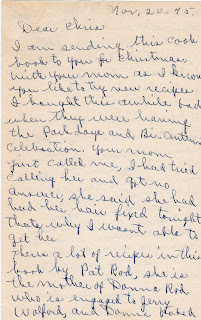 Nov, 20-75.
Dear Chris
I am sending this cook
book to you for Christmas
with your mom, as I know
you like to try new recipes
I bought this awhile back
when they were having
the Park days and Bi-Centen
celebration. You mom
just called me, I had tried
calling her and got no
answer, she said she had
had her hair fixed tonight
thats why I wasnt able to
get her.
Theres a lot of recipes in this
book by Pat Rod, she is
the mother of Donna Rod
who is engaged to Jerry
Walford, and Donna